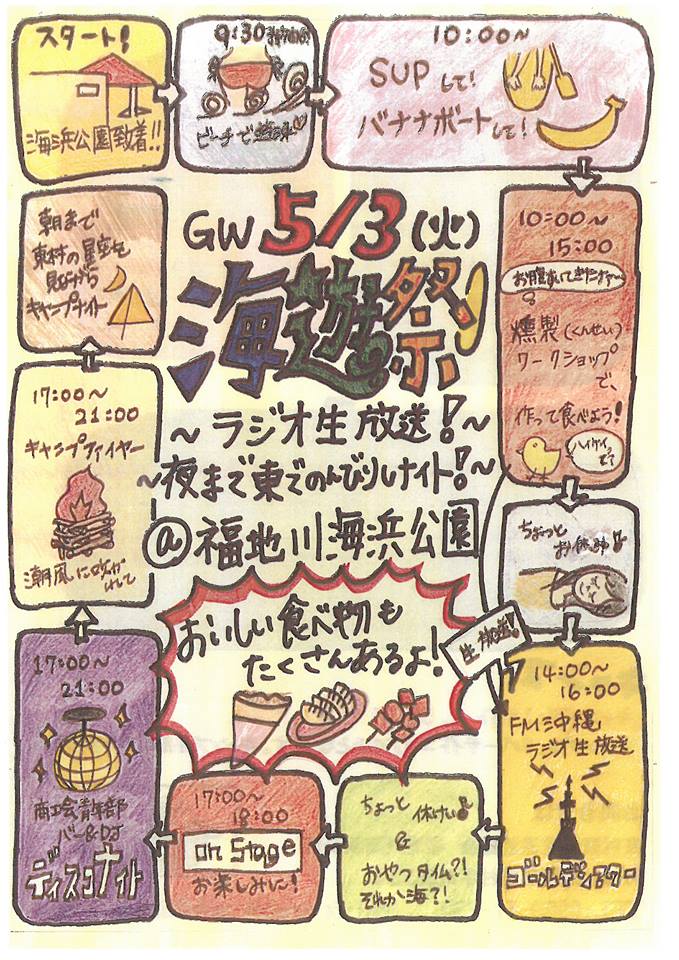 スタート!
海浜公園到着!!
9:30
ビーチで
10:00〜
SUPして!
バナナボートして!
10:00〜
15:00
お腹すいてきたナァ〜
燻製(くんせい)
ワークショップ
で、
作って食べよう!
ハイケイ
ちょっと
お休み♪
14:00〜
16:00
FM沖縄
ラジオ生放送
ゴールデンアワー
生放送!
ちょっと
休けい♪
&
おやつタイム?!
それか海?!
17:00〜
18:00
on Stage
お楽しみに!
17:00〜
21:00
商工会青年部
バー&DJ
ディスコナイト
17:00〜
21:00
キャンプファイヤー
潮風に吹かれて
朝まで
東村の星空を
見ながら
キャンプナイト
GW 5/3(火)
海遊祭
〜ラジオ生放送!〜
〜夜まで東でのんびりしナイト!〜
@福地川海浜公園
おいしい食べ物も
たくさんあるよ!